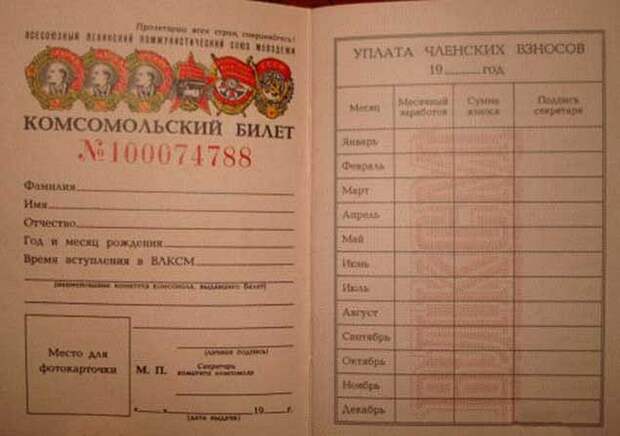 Пролетарии всех стран, соединяйтесь!
ВСЕСОЮЗНЫЙ ЛЕНИНСКИЙ КОММУНИСТИЧЕСКИЙ СОЮЗ МОЛОДЕЖИ
КОМСОМОЛЬСКИЙ БИЛЕТ
№100074788
Фамилия
Имя
Отчество
Год и месяц рождения
Время вступления в ВЛКСМ
(наименование комитета комсомола, выдавшего билет)
(личная подпись)
Место для
фотокарточки
М. П.
Секретарь
комитета комсомола
19 г.
(дата выдачи)
УПЛАТА ЧЛЕНСКИХ ВЗНОСОВ
19 год
Месяц Месячный заработок Сумма взноса Подпись секретаря
Январь
Февраль
Март
Апрель
Май
Июнь
Июль
Август
Сентябрь
Октябрь
Ноябрь
Декабрь
ВЛКСМ